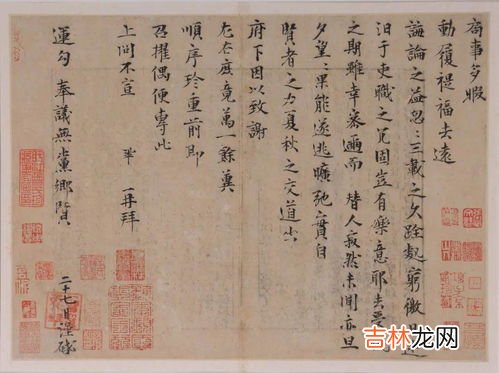 局事多暇
動履禔福去遠
誨論之益忽忽三載之久跧處窮徼日迷
汨于吏職之冗固豈有樂意耶去受代
之期雖幸密邇而替人寂然未聞亦旦
夕望望果能遂逃曠弛之實自
賢者之力夏秋之交道出
府下因以致謝
左右庶竟萬一餘冀
順序珍重前即
召擢偶便專此
上問不宣 鞏 再拜
運勾奉議無黨鄉賢 二十七日謹啟
吉林龙网